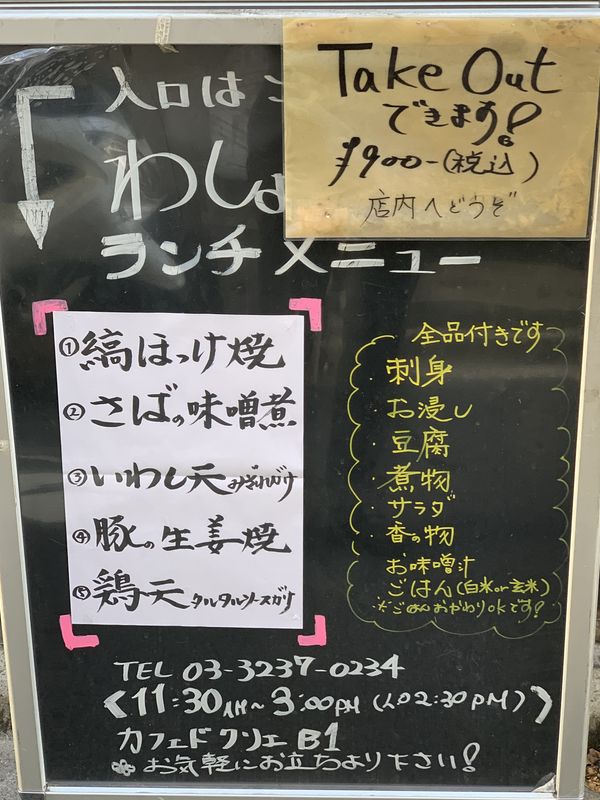 入口は
Take Out
できます!
¥900-(税込)
店内へどうぞ
わしょ
ランチメニュー
①縞ほっけ焼
②さばの味噌煮
③いわし天みぞれがけ
④豚の生姜焼
⑤鶏天タルタルソースガケ
全品付きです
・刺身
・お浸し
・豆腐
・煮物
・サラダ
・香の物
お味噌汁
ごはん(白米or玄米)
※ごはんおかわりOKです!
TEL 03-3237-0234
〈11:30AM~3:00PM(LO2:30PM)〉
カフェドクリエB1
お気軽にお立ちより下さい!